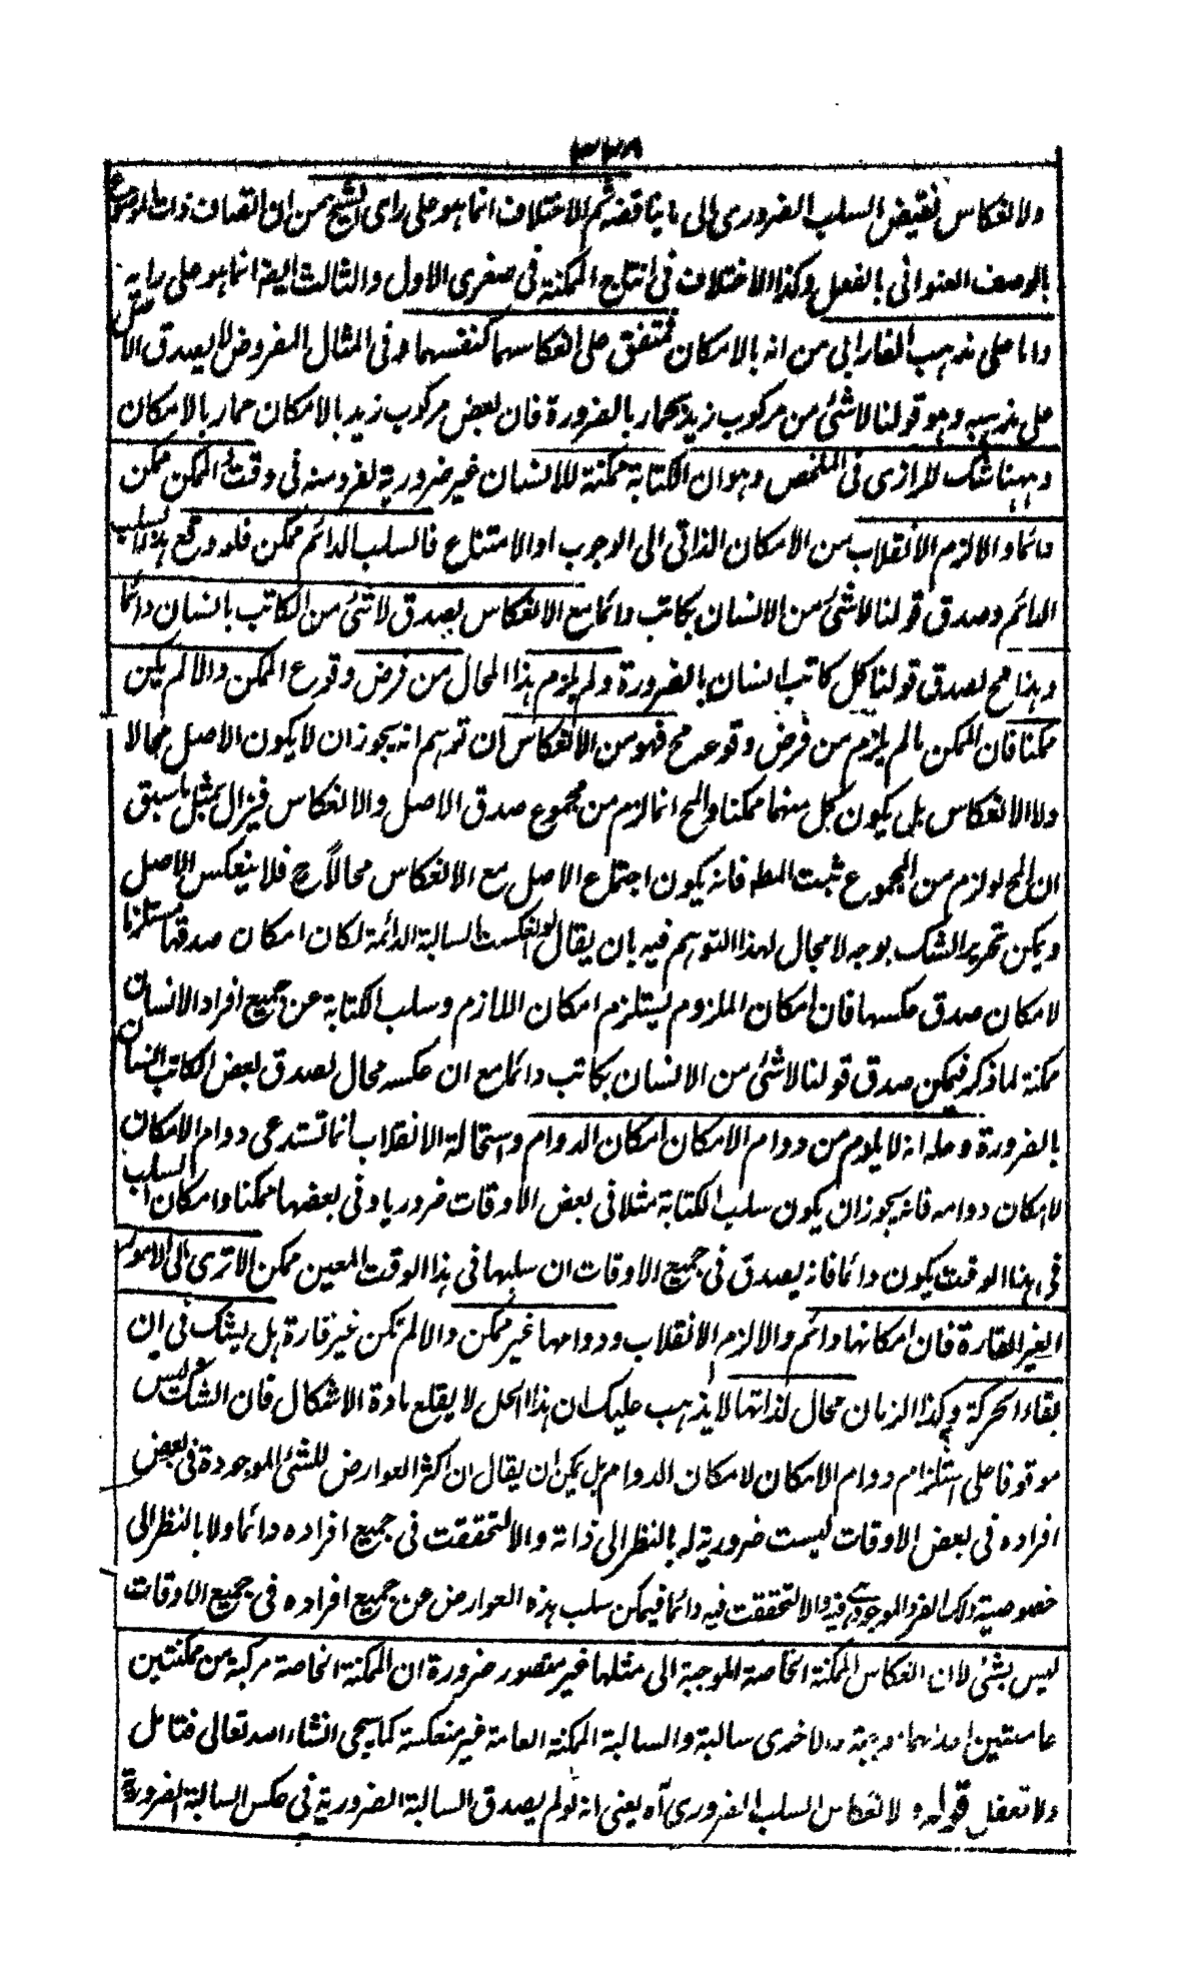 ٣٣٨
ولانعكاس نقيض السلب الضرورى الى ما يناقضه ثم الاختلاف انما هو على راى الشيخ من ان اتصاف ذات الموضوع
بالوصف العنوانى بالفعل وكذا الاختلاف فى انتاج الممكنة فى صغرى الاول والثالث ايضا انما هو على رايه
واما على مذهب الفارابى من انه بالامكان فمتفق على انعكاسهما كنفسهما وفى المثال المفروض لا يصدق الاصل
على مذهبه وهو قولنا لاشئ من مركوب زيد بحمار بالضرورة فان بعض مركوب زيد بالامكان حمار بالامكان
وههنا شك للرازى فى الملخص وهو ان الكتابة ممكنة للانسان غير ضرورية لفرد منه فى وقت والممكن ممكن
دائما والا لزم الانقلاب من الامكان الذاتى الى الوجوب او الامتناع فالسلب الدائم ممكن فلو وقع هذا السلب
الدائم وصدق قولنا لاشئ من الانسان بكاتب دائما مع الانعكاس يصدق لاشئ من الكاتب بانسان دائما
وهذا مح لصدق قولنا كل كاتب انسان بالضرورة ولم يلزم هذا المحال من فرض وقوع الممكن والا لم يكن
ممكنا فان الممكن ما لم يلزم من فرض وقوعه مح فهو من الانعكاس ان توهم انه يجوز ان لا يكون الاصل محالا
ولا الانعكاس بل يكون كل منهما ممكنا والمح انما لزم من مجموع صدق الاصل والانعكاس فيزال بمثل ما سبق
ان المح لو لزم من المجموع ثبت المط فانه يكون اجتماع الاصل مع الانعكاس محالاً ح فلا ينعكس الاصل
ويمكن تحرير الشك بوجه لا مجال لهذا التوهم فيه بان يقال لو انعكست السالبة الدائمة لكان امكان صدقها مستلزما
لامكان صدق عكسها فان امكان الملزوم يستلزم امكان اللازم وسلب الكتابة عن جميع افراد الانسان
ممكنة لما ذكر فيمكن صدق قولنا لاشئ من الانسان بكاتب دائما مع ان عكسه محال لصدق بعض الكاتب انسان
بالضرورة وحله انه لا يلزم من دوام الامكان امكان الدوام واستحالة الانقلاب انما تستدعى دوام الامكان
لا امكان دوامه فانه يجوز ان يكون سلب الكتابة مثلا فى بعض الاوقات ضروريا وفى بعضها ممكنا وامكان السلب
فى هذا الوقت يكون دائما فانه يصدق فى جميع الاوقات ان سلبها فى هذا الوقت المعين ممكن الا ترى الى الامور
الغير القارة فان امكانها دائم والا لزم الانقلاب ودوامها غير ممكن والا لم تكن غير قارة بل يشك فى ان
بقاء الحركة وكذا الزمان محال لذاتها لا يذهب عليك ان هذا الحل لا يقلع مادة الاشكال فان الشك ليس
موقوفا على استلزام دوام الامكان لامكان الدوام بل يمكن ان يقال ان اكثر العوارض للشئ الموجودة فى بعض
افراده فى بعض الاوقات ليست ضرورية له بالنظر الى ذاته والا لتحققت فى جميع افراده دائما ولا بالنظر الى
خصوصية ذلك الفرد الموجودة فيه والا لتحققت فيه دائما فيمكن سلب هذه العوارض عن جميع افراده فى جميع الاوقات
ليس بشئ لان انعكاس الممكنة الخاصة الموجبة الى مثلها غير متصور ضرورة ان الممكنة الخاصة مركبة من ممكنتين
عامتين احداهما موجبة والاخرى سالبة والسالبة الممكنة العامة غير منعكسة كما سيجئ انشاء الله تعالى فتامل
ولا تغفل قوله ولانعكاس السلب الضرورى آه يعنى انه لو لم يصدق السالبة الضرورية فى عكس السالبة الضرورية